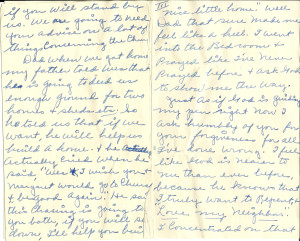 if you will stand by
us. We are going to need
your advice on a lot of
things concerning the
Dad when we got home
my father told us that
he is going to deed us
enough ground for two
homes & gardens. So
he told us that if we
want, he will help us
build a home. & he
actually cried when he
said, "I wish you &
Margaret would go to Church
& be good again". He said
this blessing is going to
you both, if you will settle
down, I'll help you build
III
"nice little home" well
Dad that sure made me
feel like a heel. I went
into the Bedroom &
Prayed like I've never
Prayed before & ask God
to show me the way.
Just as if God is guiding
my pen right now I
ask humbly of you for
your forgiveness for all
I've done wrong. I feel
like God is nearer to
me than ever before,
because he knows that
I truly want to Repent, &
"Love my Neighbor."
I concentrated on that